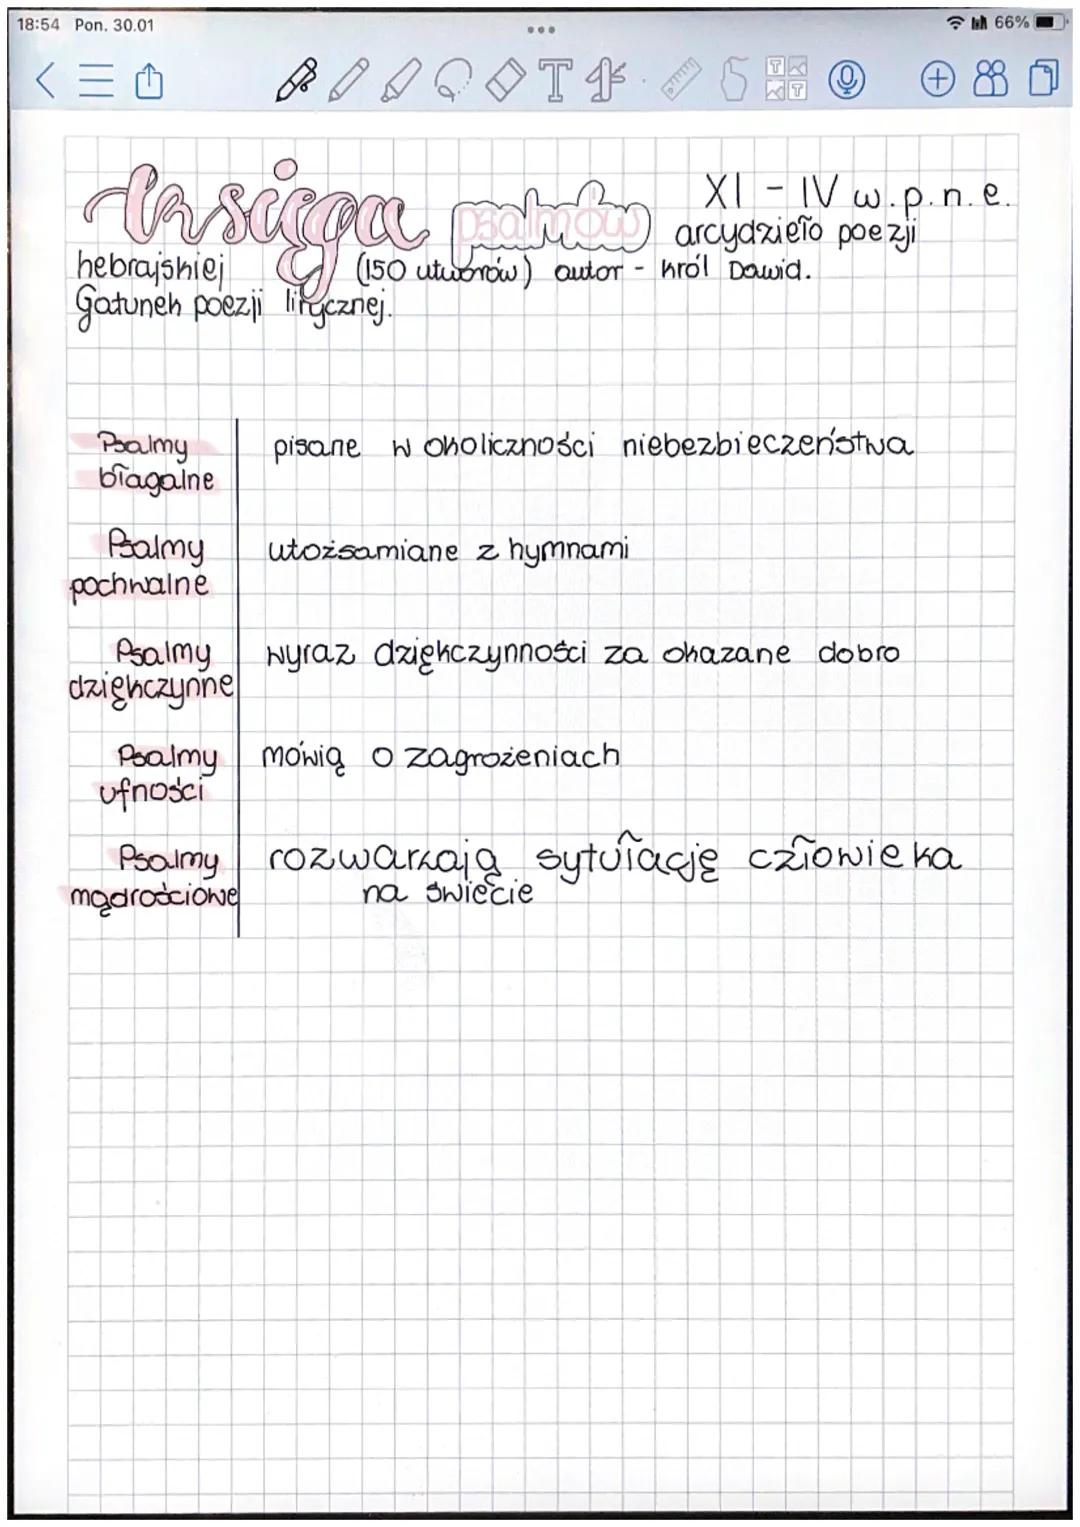 18:54 Pon. 30.01
66%
Księga psalmów
XI - IV w.p.n.e.
arcydzieło poezji
hebrajskiej (150 utworów) autor - król Dawid.
Gatunek poezji lirycznej.
Psalmy błagalne
pisane w okoliczności niebezbieczeństwa
Psalmy pochwalne
utożsamiane z hymnami
Psalmy dziękczynne
wyraz dziękczynności za okazane dobro
Psalmy ufności
mówią o zagrożeniach
Psalmy mądrościowe
rozwarzają sytułację człowieka
na świecie